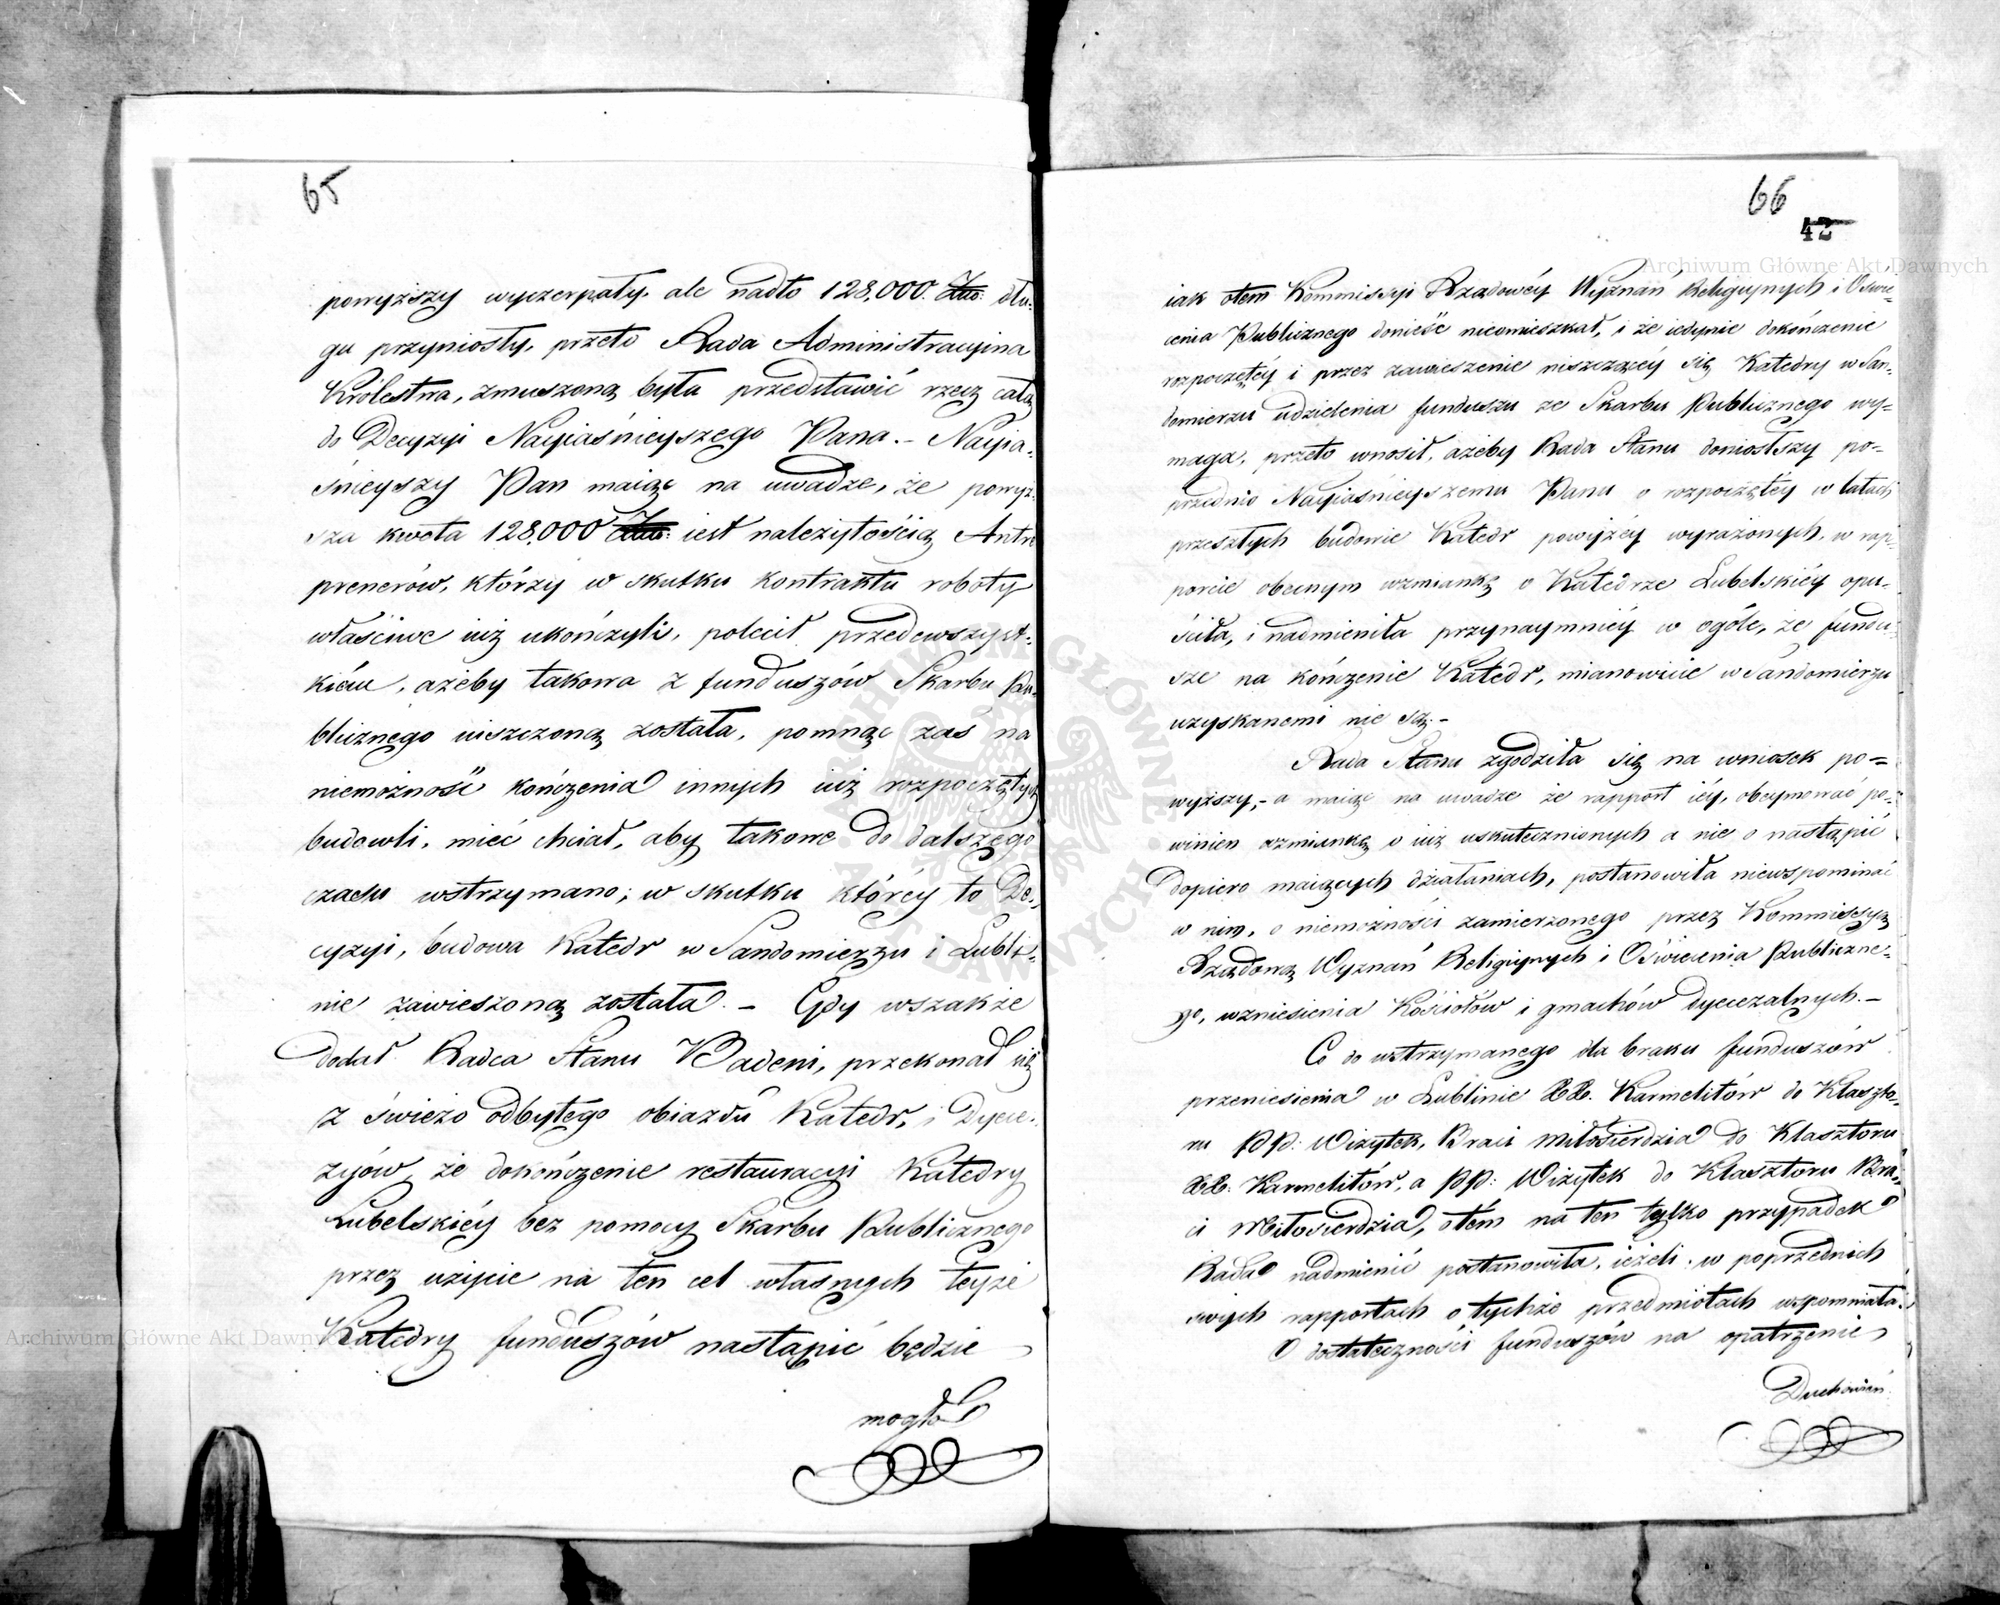 65
powyższy wyczerpały, ale nadto 128,000 Złto: dłu-
gu przyniosły, przeto Rada Administracyina
Królestwa, zmuszoną była przedstawić rzecz całą
do Decyzyi Nayiaśnieyszego Pana. - Nayia-
śnieyszy Pan maiąc na uwadze, że powyż-
sza kwota 128,000 Złto: iest należytością Antre
prenerów, którzy w skutku kontraktu roboty
właściwe iuż ukończyli, polecił przedewszyst-
kiém, ażeby takowa z funduszów Skarbu Pu-
blicznego uiszczoną została, pomnąc zaś na
niemożność kończenia innych iuż rozpoczętych
budowli, mieć chciał, aby takowe do dalszego
czasu wstrzymano; w skutku któréy to De-
cyzyi, budowa Katedr w Sandomierzu i Lubli-
nie zawieszoną została. - Gdy wszakże
dodał Radca Stanu Badeni, przekonał się
z świeżo odbytego obiazdu Katedr, i Dyece-
zyów, że dokończenie restauracyi Katedry
Lubelskiéy bez pomocy Skarbu Publicznego
przez użycie na ten cel własnych teyże
Katedry funduszów nastąpić będzie
mogło
66
42
iak otem Kommissyi Rządowéy Wyznań Religiynych i Oświe-
cenia Publicznego donieść nieomieszkał, i że iedynie dokończenie
rozpoczętéy i przez zawieszenie niszczącéy się Katedry w San-
domierzu udzielenia funduszu ze Skarbu Publicznego wy-
maga, przeto wnosił, ażeby Rada Stanu doniosłszy po-
przednio Nayiaśnieyszemu Panu o rozpoczętéy w latach
przeszłych budowie Katedr powyżéy wyrażonych, w rap-
porcie obecnym wzmiankę o Katedrze Lubelskiéy opu-
ściła, i nadmieniła przynaymniéy w ogóle, że fundu-
sze na kończenie Katedr, mianowicie w Sandomierzu
uzyskanemi nie są. -
Rada Stanu zgodziła się na wniosek po-
wyższy, - a maiąc na uwadze że rapport iéy, obeymować po-
winien wzmiankę o iuż uskutecznionych a nie o nastąpić
dopiero maiących działaniach, postanowiła niewspominać
w nim, o niemożności zamierzonego przez Kommissyą
Rządową Wyznań Religiynych i Oświecenia Publiczne-
go, wzniesienia Kościołów i gmachów dyecezalnych. -
Co do wstrzymanego dla braku funduszów
przeniesienia w Lublinie XX. Karmelitów do Klaszto-
ru PP: Wizytek, Braci Miłosierdzia do Klasztoru
XX. Karmelitów, a PP: Wizytek do Klasztoru Bra-
ci Miłosierdzia, otém na ten tylko przypadek
Rada nadmienić postanowiła, ieżeli w poprzednich
swych rapportach o tychże przedmiotach wspomniała.
O dostateczności funduszów na opatrzenie
Duchowień-
Archiwum Główne Akt Dawnych
Archiwum Główne Akt Dawnych
ARCHIWUM GŁÓWNE AKT DAWNYCH